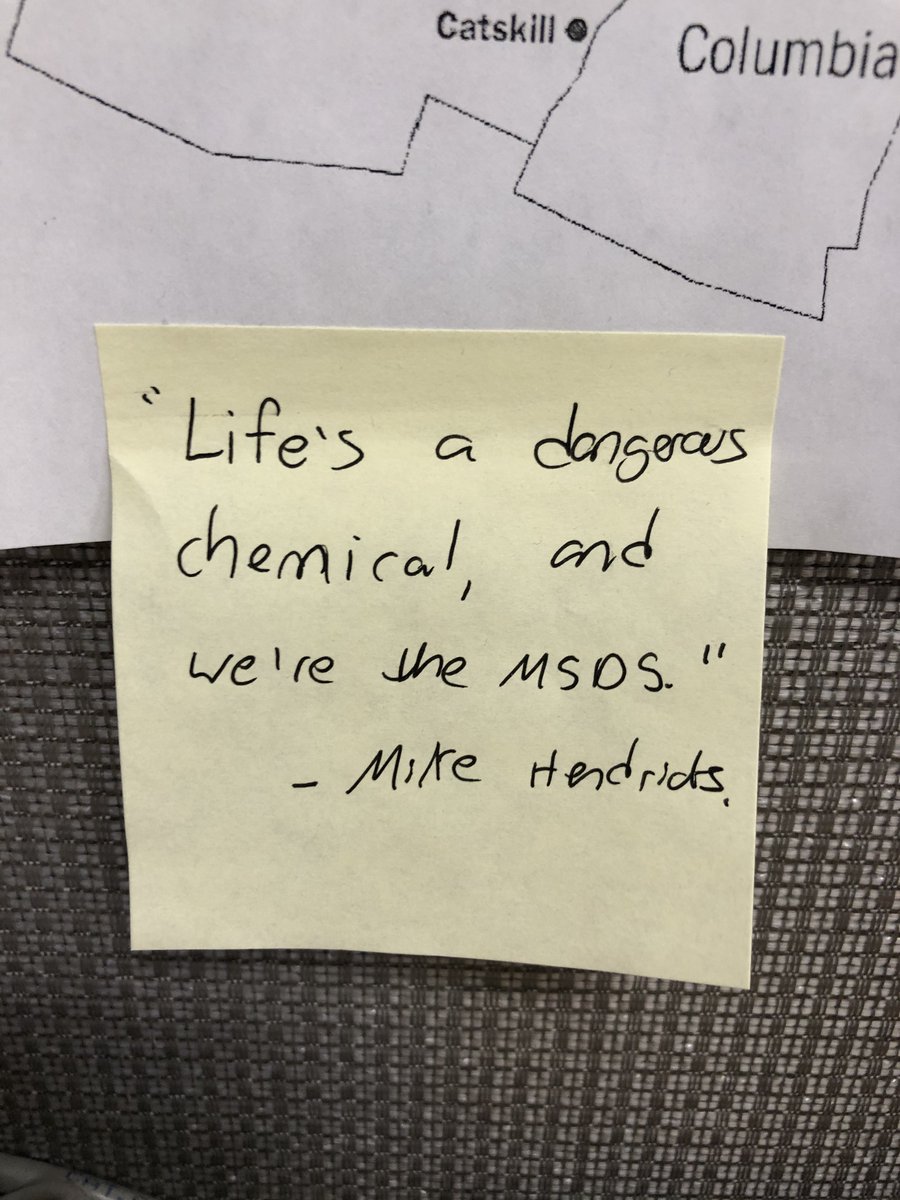 Catskill
Columbia
"Life's a dangerous
chemical, and
we're the MSDS."
- Mike Hendricks.